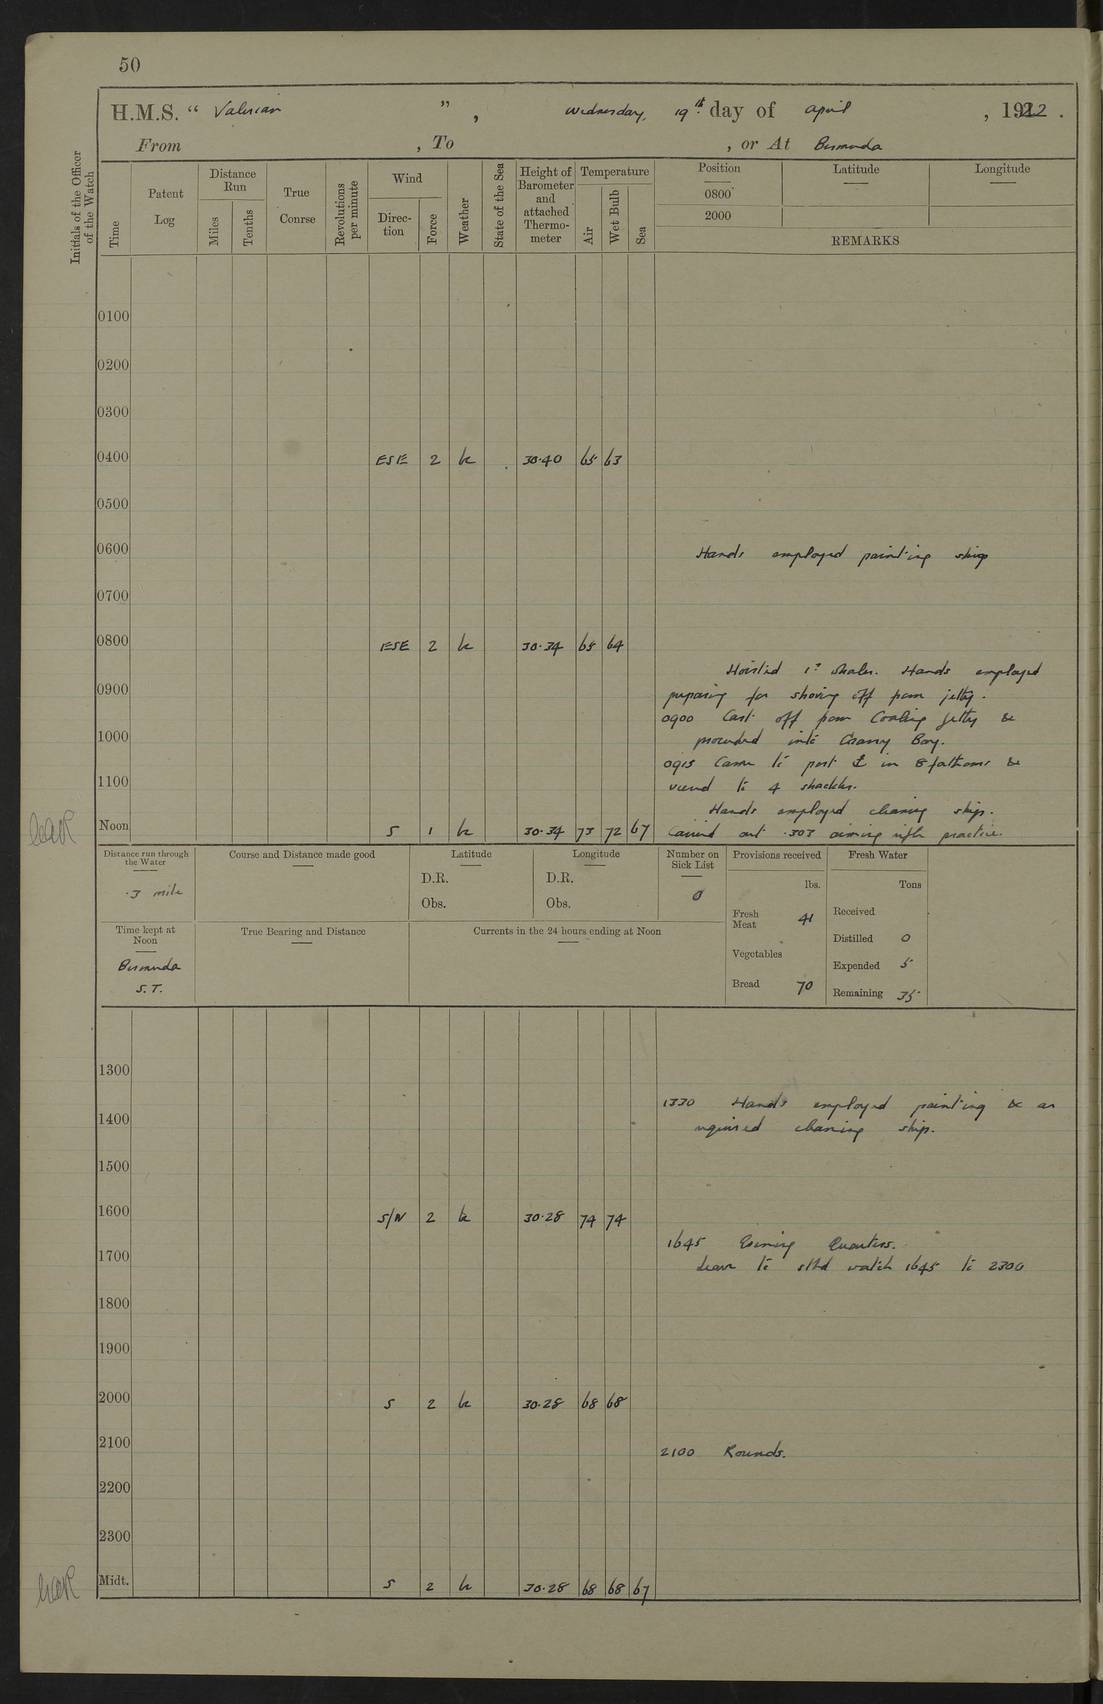 50
H.M.S. " Valerian ", Wednesday, 19th day of April, 1922.
From , To , or At Bermuda
Initials of the Officer of the Watch
Time
Patent Log
Distance Run
Miles
Tenths
True Conrse
Revolutions per minute
Wind
Direc-tion
Force
Weather
State of the Sea
Height of Barometer and attached Thermo-meter
Temperature
Air
Wet Bulb
Sea
Position Latitude Longitude
0800
2000
REMARKS
0100
0200
0300
0400 ESE 2 bc 30.40 65 63
0500
0600 Hands employed painting ship
0700
0800 ESE 2 bc 30.34 65 64
Hoisted 1st Whaler. Hands employed
0900 preparing for shoving off from jetty.
0900 Cast off from Coaling Jetty &
1000 proceeded into Grassy Bay.
0915 Came to port ⚓ in 8 fathoms &
1100 veered to 4 shackles.
Hands employed cleaning ship.
Noon S 1 bc 30.34 73 72 67 Carried out .303 aiming rifle practice.
Distance run through the Water
.3 mile
Course and Distance made good
Latitude
D.R.
Obs.
Longitude
D.R.
Obs.
Number on Sick List
0
Provisions received
lbs.
Fresh Meat 41
Vegetables
Bread 70
Fresh Water
Tons
Received
Distilled 0
Expended 5
Remaining 35
Time kept at Noon
Bermuda
S.T.
True Bearing and Distance
Currents in the 24 hours ending at Noon
1300
1330 Hands employed painting & as
1400 required cleaning ship.
1500
1600 S/W 2 bc 30.28 74 74
1645 Evening Quarters.
1700 Leave to stbd watch 1645 to 2300
1800
1900
2000 S 2 bc 30.28 68 68
2100 2100 Rounds.
2200
2300
Midt. S 2 bc 30.28 68 68 67